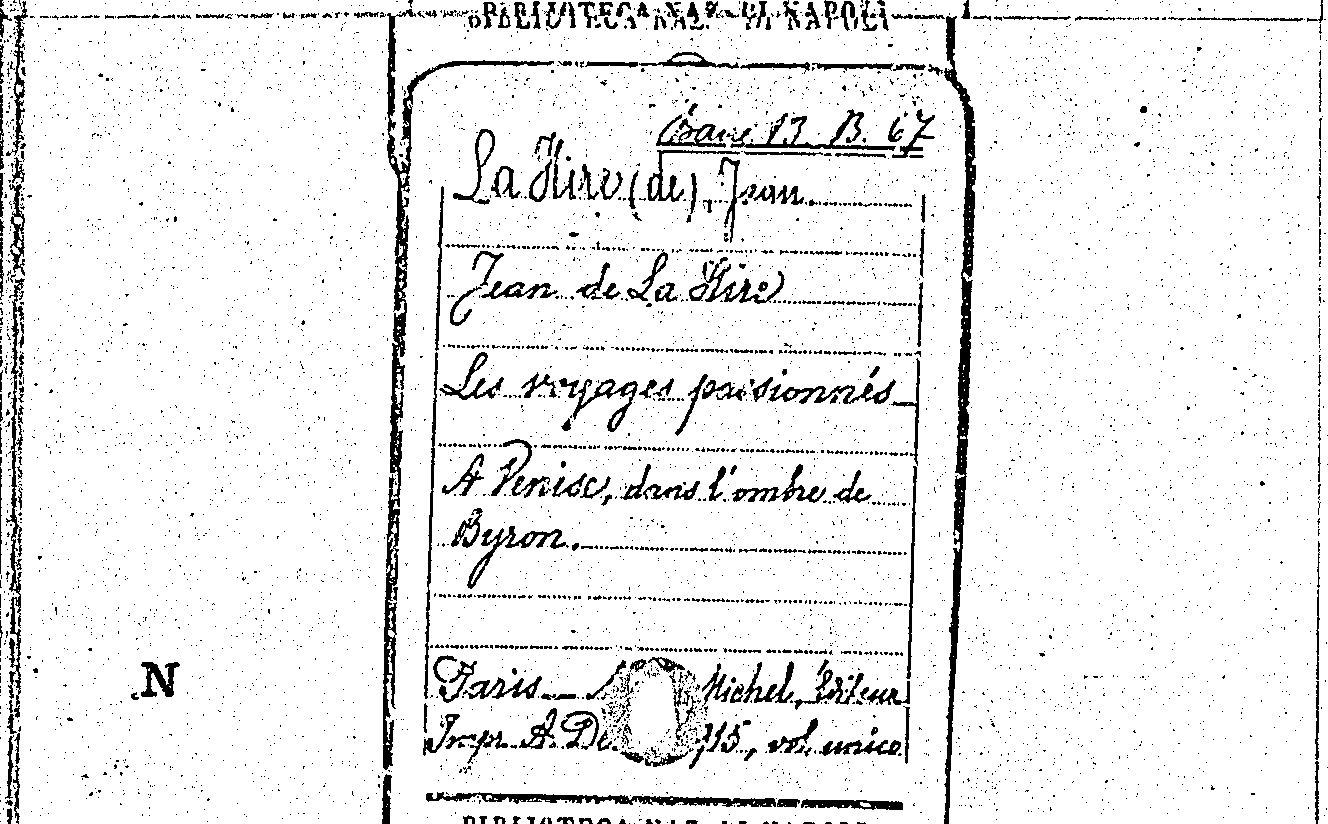 BIBLIOTECA NAZ. DI NAPOLI
13. B. 67
La Hire (de), Jean.
Jean de La Hire
Les voyages passionnés_
A Venise, dans l'ombre de
Byron.
N
Paris _ Michel, Éditeur
Impr. A. De 15, vol. unico
BIBLIOTECA NAZ. DI NAPOLI